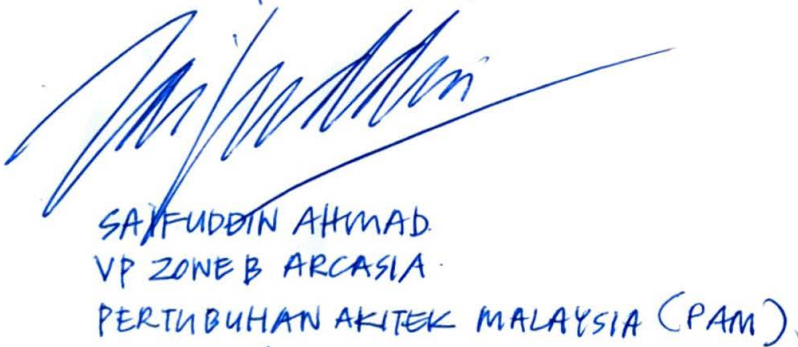 Saifuddin
SAIFUDDIN AHMAD.
VP ZONE B ARCASIA.
PERTUBUHAN AKITEK MALAYSIA (PAM).